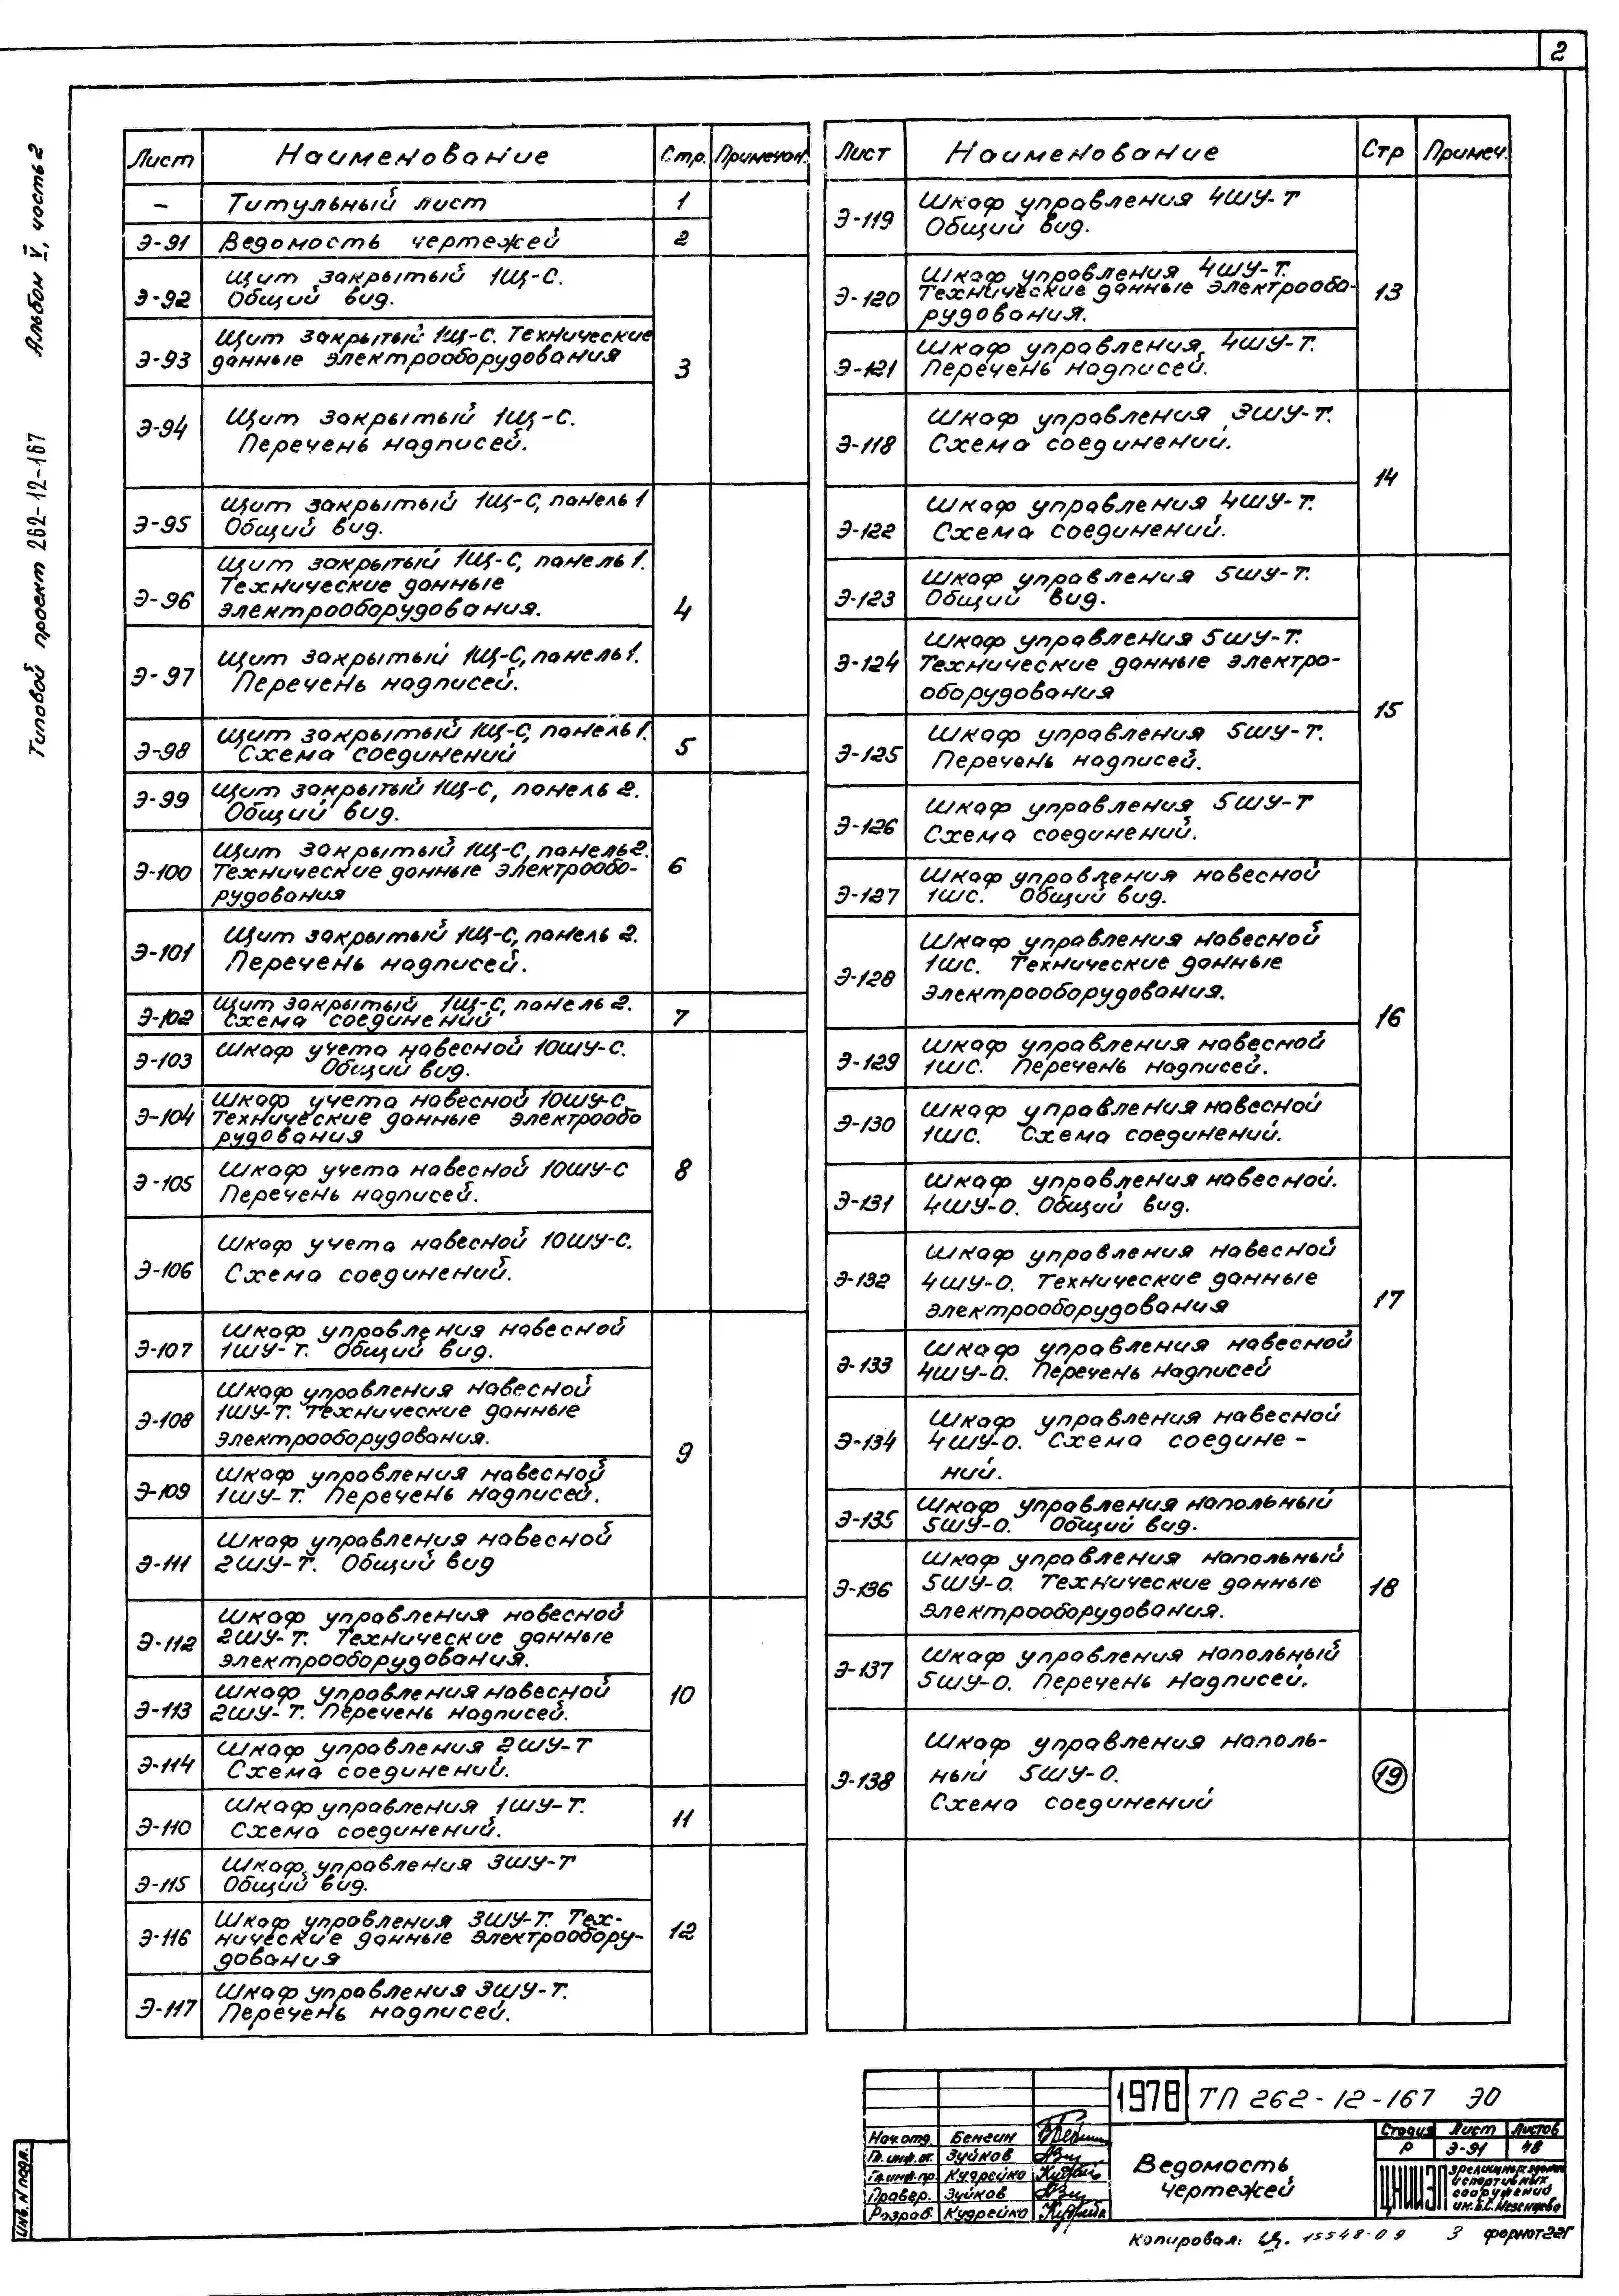 2
Типовой проект 262-12-167 Альбом V, часть 2
Лист Наименование Стр. Примечан.
– Титульный лист 1
Э-91 Ведомость чертежей 2
Э-92 Щит закрытый 1Щ-С.
Общий вид.
Э-93 Щит закрытый 1Щ-С. Технические
данные электрооборудования
3
Э-94 Щит закрытый 1Щ-С.
Перечень надписей.
Э-95 Щит закрытый 1Щ-С, панель 1
Общий вид.
Э-96 Щит закрытый 1Щ-С, панель 1.
Технические данные
электрооборудования.
4
Э-97 Щит закрытый 1Щ-С, панель 1.
Перечень надписей.
Э-98 Щит закрытый 1Щ-С, панель 1.
Схема соединений
5
Э-99 Щит закрытый 1Щ-С, панель 2.
Общий вид.
Э-100 Щит закрытый 1Щ-С, панель 2.
Технические данные электрообо-
рудования
6
Э-101 Щит закрытый 1Щ-С, панель 2.
Перечень надписей.
Э-102 Щит закрытый 1Щ-С, панель 2.
Схема соединений
7
Э-103 Шкаф учета навесной 10ШУ-С.
Общий вид.
Э-104 Шкаф учета навесной 10ШУ-С.
Технические данные электрообо
рудования
Э-105 Шкаф учета навесной 10ШУ-С
Перечень надписей.
8
Э-106 Шкаф учета навесной 10ШУ-С.
Схема соединений.
Э-107 Шкаф управления навесной
1ШУ-Т. Общий вид.
Э-108 Шкаф управления навесной
1ШУ-Т. Технические данные
электрооборудования.
9
Э-109 Шкаф управления навесной
1ШУ-Т. Перечень надписей.
Э-111 Шкаф управления навесной
2ШУ-Т. Общий вид
Э-112 Шкаф управления навесной
2ШУ-Т. Технические данные
электрооборудования.
Э-113 Шкаф управления навесной
2ШУ-Т. Перечень надписей.
10
Э-114 Шкаф управления 2ШУ-Т
Схема соединений.
Э-110 Шкаф управления 1ШУ-Т.
Схема соединений.
11
Э-115 Шкаф управления 3ШУ-Т
Общий вид.
Э-116 Шкаф управления 3ШУ-Т. Тех-
нические данные электрообору-
дования
12
Э-117 Шкаф управления 3ШУ-Т.
Перечень надписей.
Лист Наименование Стр Примеч.
Э-119 Шкаф управления 4ШУ-Т
Общий вид.
Э-120 Шкаф управления 4ШУ-Т.
Технические данные электрообо-
рудования.
13
Э-121 Шкаф управления 4ШУ-Т.
Перечень надписей.
Э-118 Шкаф управления 3ШУ-Т.
Схема соединений.
14
Э-122 Шкаф управления 4ШУ-Т.
Схема соединений.
Э-123 Шкаф управления 5ШУ-Т.
Общий вид.
Э-124 Шкаф управления 5ШУ-Т.
Технические данные электро-
оборудования
15
Э-125 Шкаф управления 5ШУ-Т.
Перечень надписей.
Э-126 Шкаф управления 5ШУ-Т
Схема соединений.
Э-127 Шкаф управления навесной
1ШС. Общий вид.
Э-128 Шкаф управления навесной
1ШС. Технические данные
электрооборудования.
16
Э-129 Шкаф управления навесной
1ШС. Перечень надписей.
Э-130 Шкаф управления навесной
1ШС. Схема соединений.
Э-131 Шкаф управления навесной.
4ШУ-О. Общий вид.
Э-132 Шкаф управления навесной
4ШУ-О. Технические данные
электрооборудования
17
Э-133 Шкаф управления навесной
4ШУ-О. Перечень надписей
Э-134 Шкаф управления навесной
4ШУ-О. Схема соедине-
ний.
Э-135 Шкаф управления напольный
5ШУ-О. Общий вид.
Э-136 Шкаф управления напольный
5ШУ-О. Технические данные
электрооборудования.
18
Э-137 Шкаф управления напольный
5ШУ-О. Перечень надписей.
Э-138 Шкаф управления наполь-
ный 5ШУ-О.
Схема соединений
19
1978 ТП 262-12-167 ЭО
Нач.отд. Бенгин
Гл.инж.от. Зуйков
Гл.инж.пр. Кудрейко
Провер. Зуйков
Разраб. Кудрейко
Ведомость
чертежей
Стадия Лист Листов
Р Э-91 48
ЦНИИЭП зрелищных зданий
и спортивных
сооружений
им. Б.С. Мезенцева
Инв. N подл.
Копировал: 15548-09 3 формат 22Г